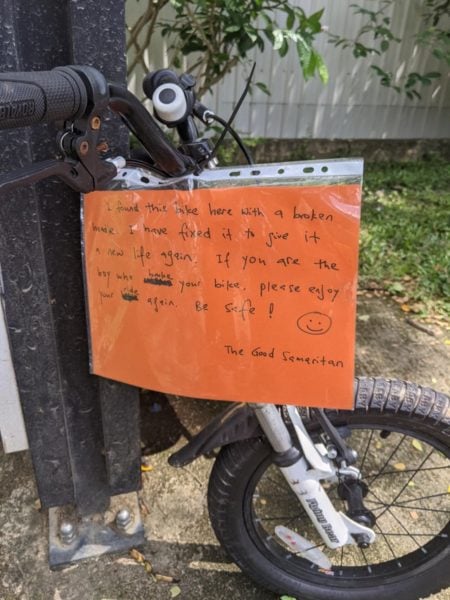 I found this bike here with a broken
brake. I have fixed it to give it
a new life again. If you are the
boy who broke your bike, please enjoy
your ride again. Be safe!
The Good Samaritan
Flying Bear